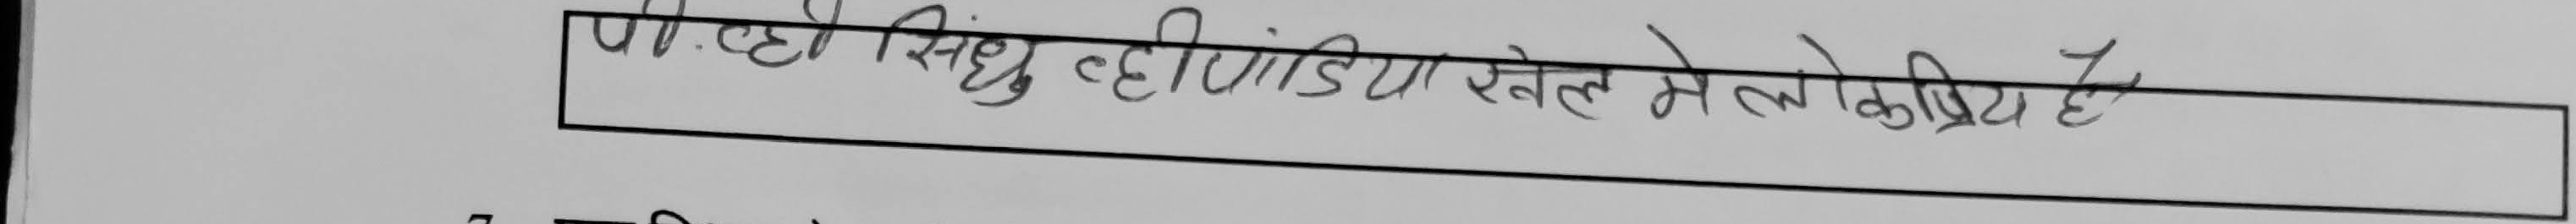 पी.व्ही सिंधु व्हीपांडिया खेल मे लोकप्रिय है